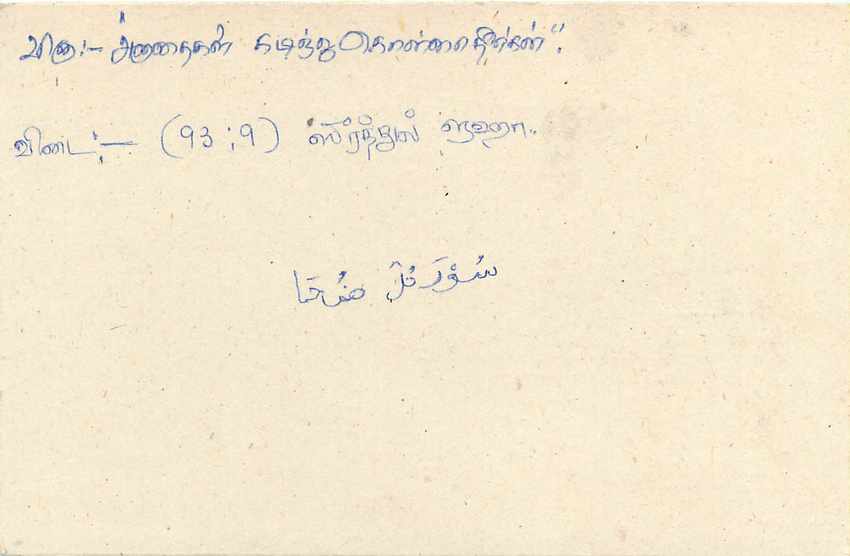 வினா:- அனாதைகள் கடிந்து கொள்ளாதீர்கள்".
விடை:- (93:9) ஸூரத்துல் ளுஹா..
سُوْرَتُلْ ضُحَا